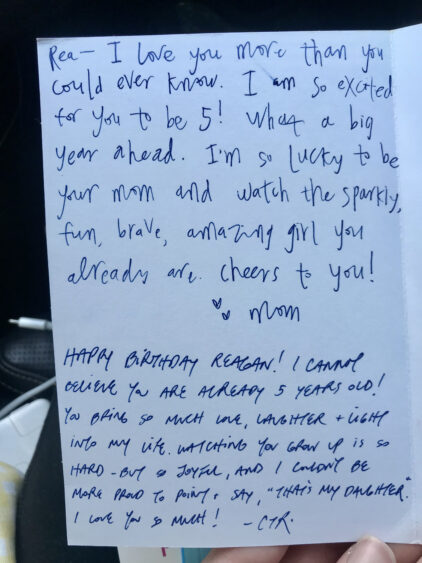 Rea— I love you more than you
could ever know. I am so excited
for you to be 5! What a big
year ahead. I'm so lucky to be
your mom and watch the sparkly,
fun, brave, amazing girl you
already are. cheers to you!
mom
HAPPY BIRTHDAY REAGAN! I CANNOT
BELIEVE YOU ARE ALREADY 5 YEARS OLD!
YOU BRING SO MUCH LOVE, LAUGHTER + LIGHT
INTO MY LIFE. WATCHING YOU GROW UP IS SO
HARD - BUT SO JOYFUL, AND I COULDN'T BE
MORE PROUD TO POINT + SAY, "THAT'S MY DAUGHTER".
I LOVE YOU SO MUCH! - CTR.